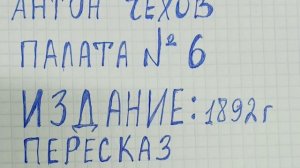 АНТОН ЧЕХОВ
ПАЛАТА № 6
ИЗДАНИЕ: 1892 г
ПЕРЕСКАЗ